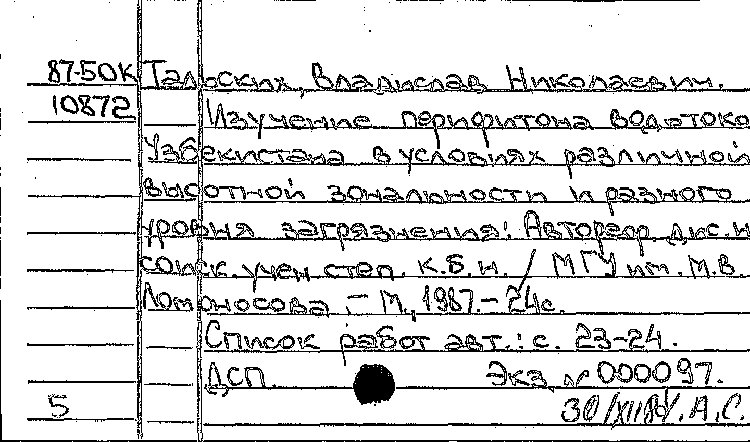 87-50К Тальских, Владислав Николаевич.
10872 Изучение перифитона водотоко
Узбекистана в условиях различной
высотной зональности и разного
уровня загрязнения: Автореф. дис. н
соиск. учен. степ. к.б.н. / МГУ им. М.В.
Ломоносова. - М., 1987. - 24с.
Список работ авт.: с. 23-24.
ДСП. Экз. № 000097.
5 А.С.